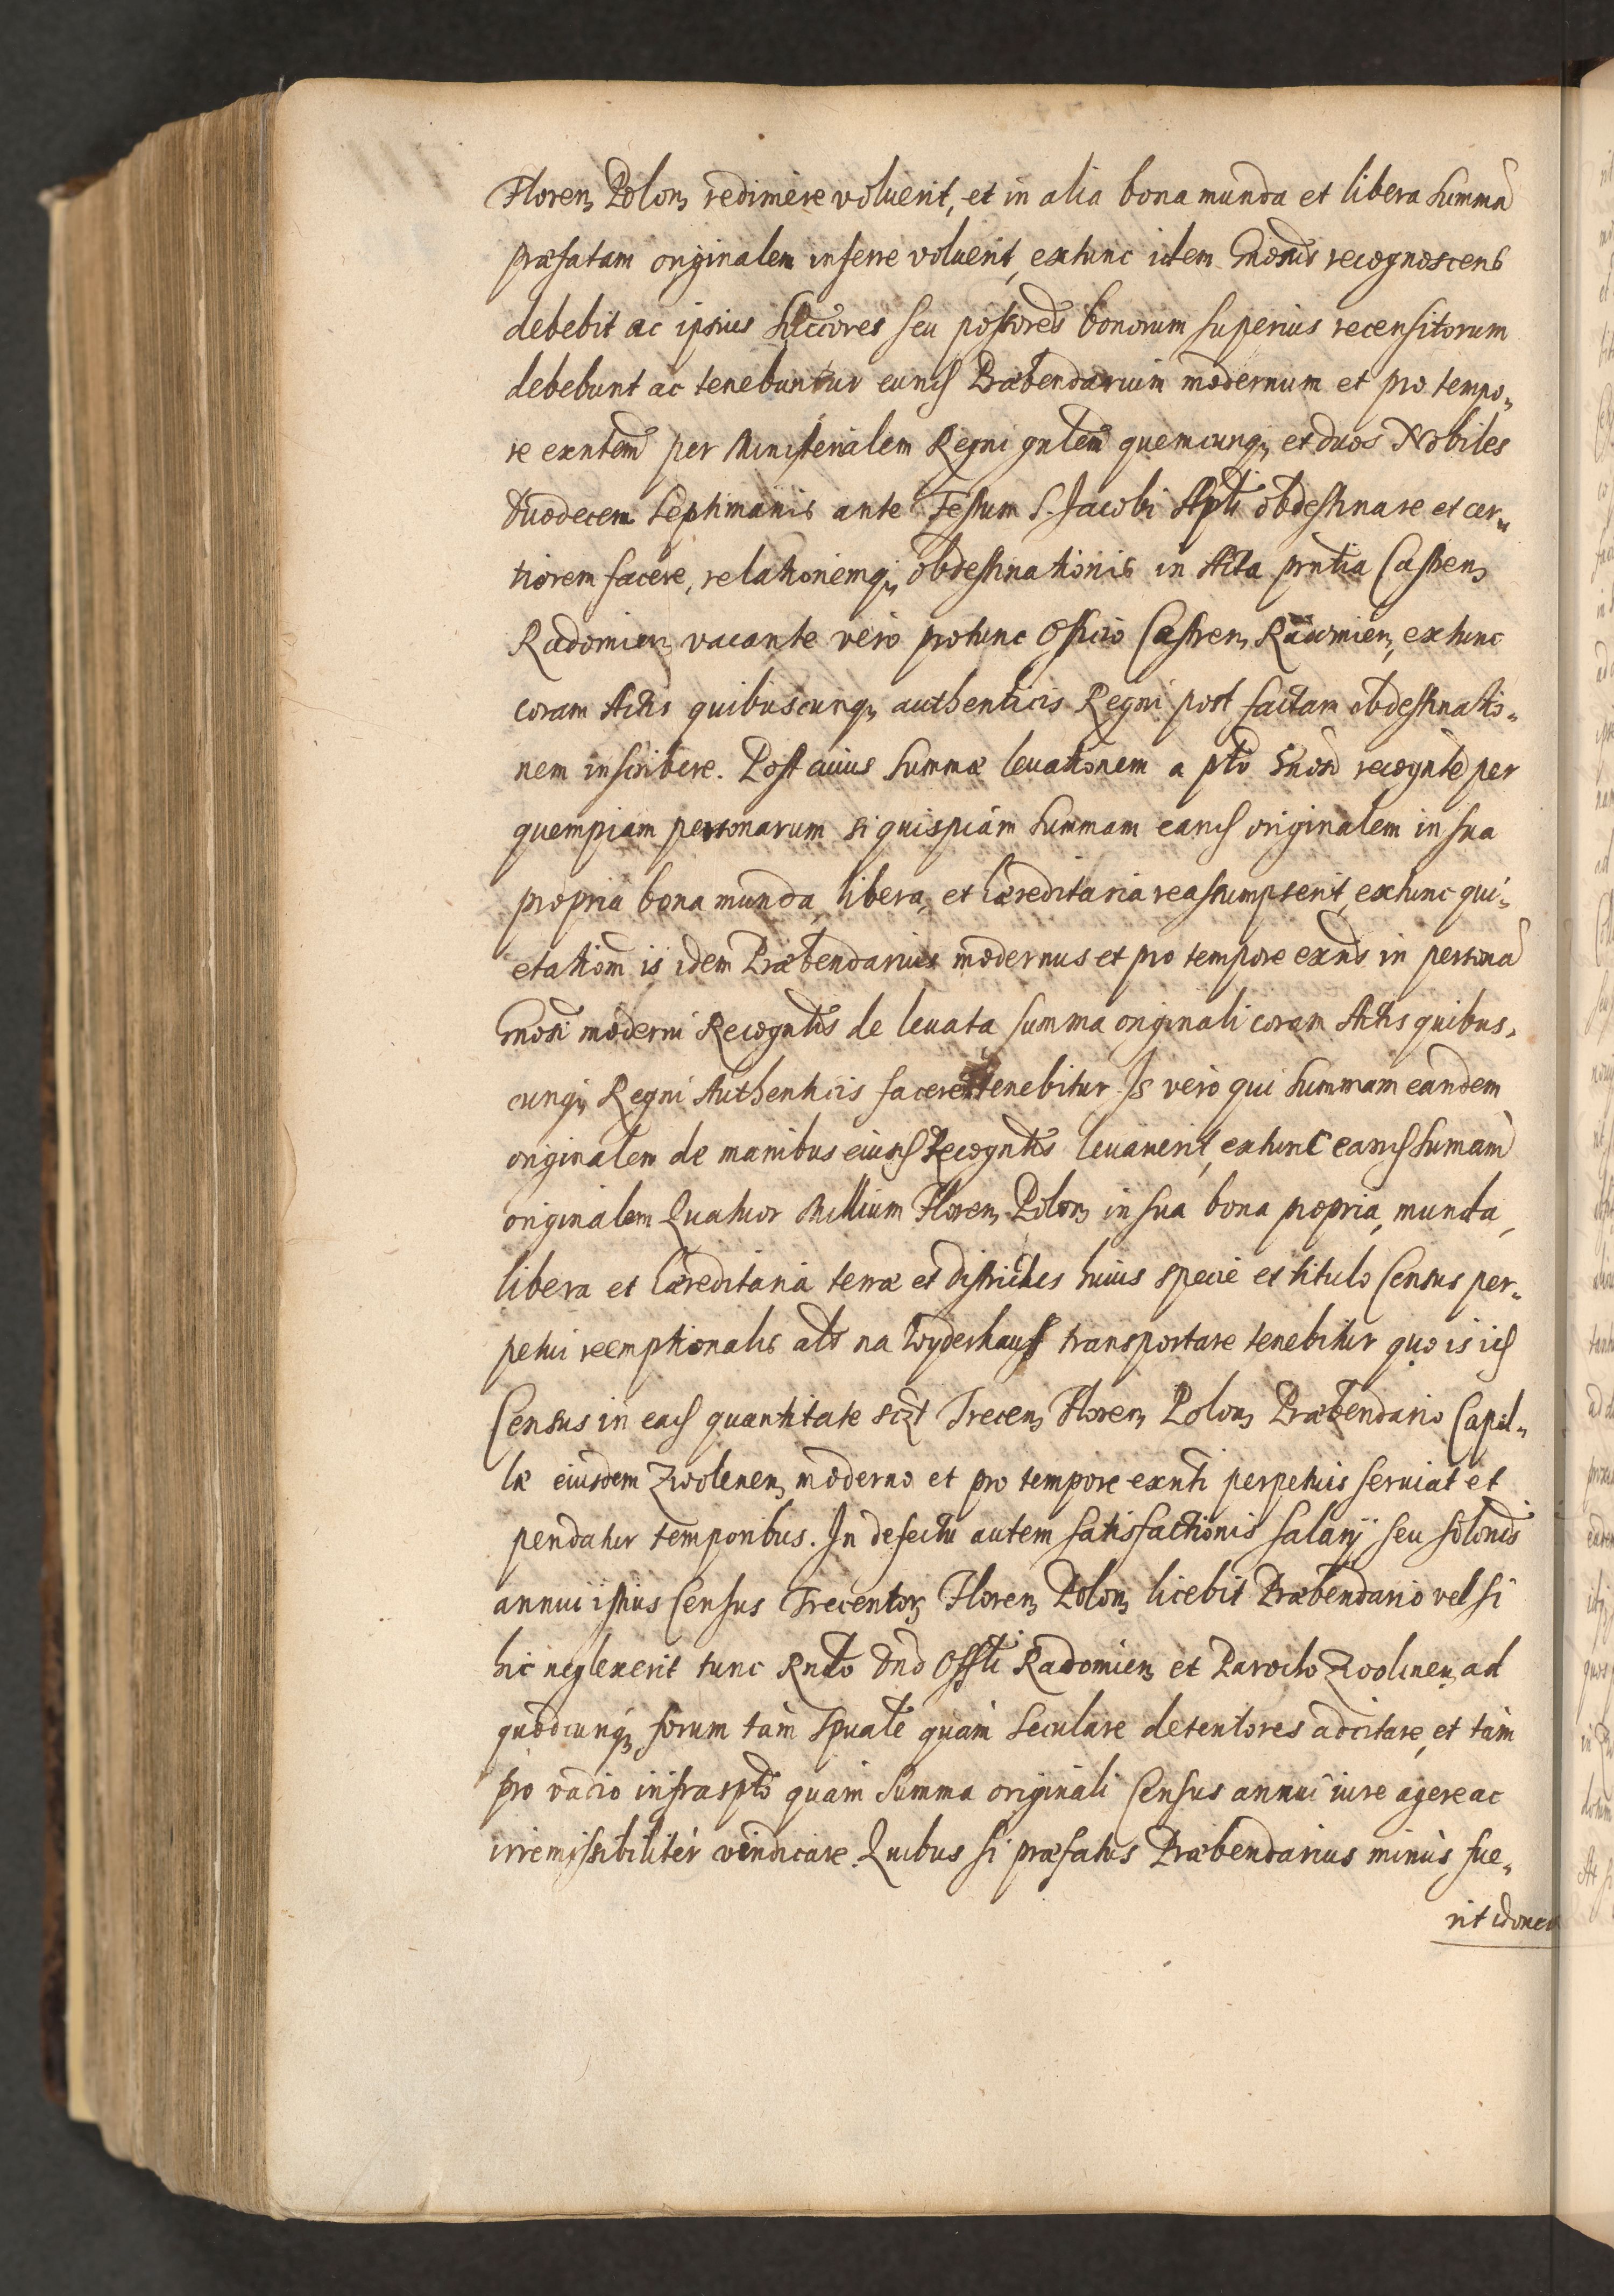 Floren Polon redimere voluerit, et in alia bona munda et libera Summã
præfatam originalem inferre voluerit, extunc idem Gnosus recognoscens
debebit ac ipsius Succores seu possores bonorum superius recensitorum
debebunt ac tenebuntur eund Præbendarium modernum et pro tempo„
re exntem per Ministerialem Regni gnlem quemcunq, et duos Nobiles
duodecem Septimanis ante Festum S. Jacobi Apli obdestinare et cer„
tiorem facere, relationemq, obdestinationis in Acta prntia Castren,
Radomien, vacante vero protunc Officio Castren, Radomien, extunc
coram Actis quibuscunq, authenticis Regni post factam obdestinatio„
nem inscribere. Post cuius Summæ levationem a pto Gnoso recognte per
quempiam personarum si quispiam Summam eand originalem in sua
propria bona munda, libera, et hæreditaria reassumpserit, extunc qui„
etationem is idem Præbendarius modernus et pro tempore exns in personã
Gnosi moderni Recogntis de levata summa originali coram Actis quibus„
cunq, Regni Authenticis facere tenebitur. Is vero qui Summam eandem
originalem de manibus eiusd Recogntis levaverit, extunc eand Sumam
originalem Quatuor Millium Floren, Polon, in sua bona propria, munda,
libera et hæreditaria terræ et districtus huius specie et titulo Census per„
petui reemptionalis als na Wyderkauff transportare tenebitur quo is id
Census in ead quantitate sczt Trecen, Floren, Polon, Præbendario Capel„
læ eiusdem Zwolenen, moderno et pro tempore exnti perpetuis serviat et
pendatur temporibus. In defectu autem satisfactionis salarij seu solonis
annui istius Census Trecentor, Floren, Polon, licebit Præbendario vel si
hic neglexerit tunc Rndo Dno Offli Radomien, et Parocho Zwolinen, ad
quodcunq, forum tam Spuale quam seculare detentores adcitare, et tam
pro vadio infraspto quam Summa originali Census annui iure agere ac
irremissibiliter vindicare. Quibus si præfatus Præbendarius minus fue„
rit idoneus